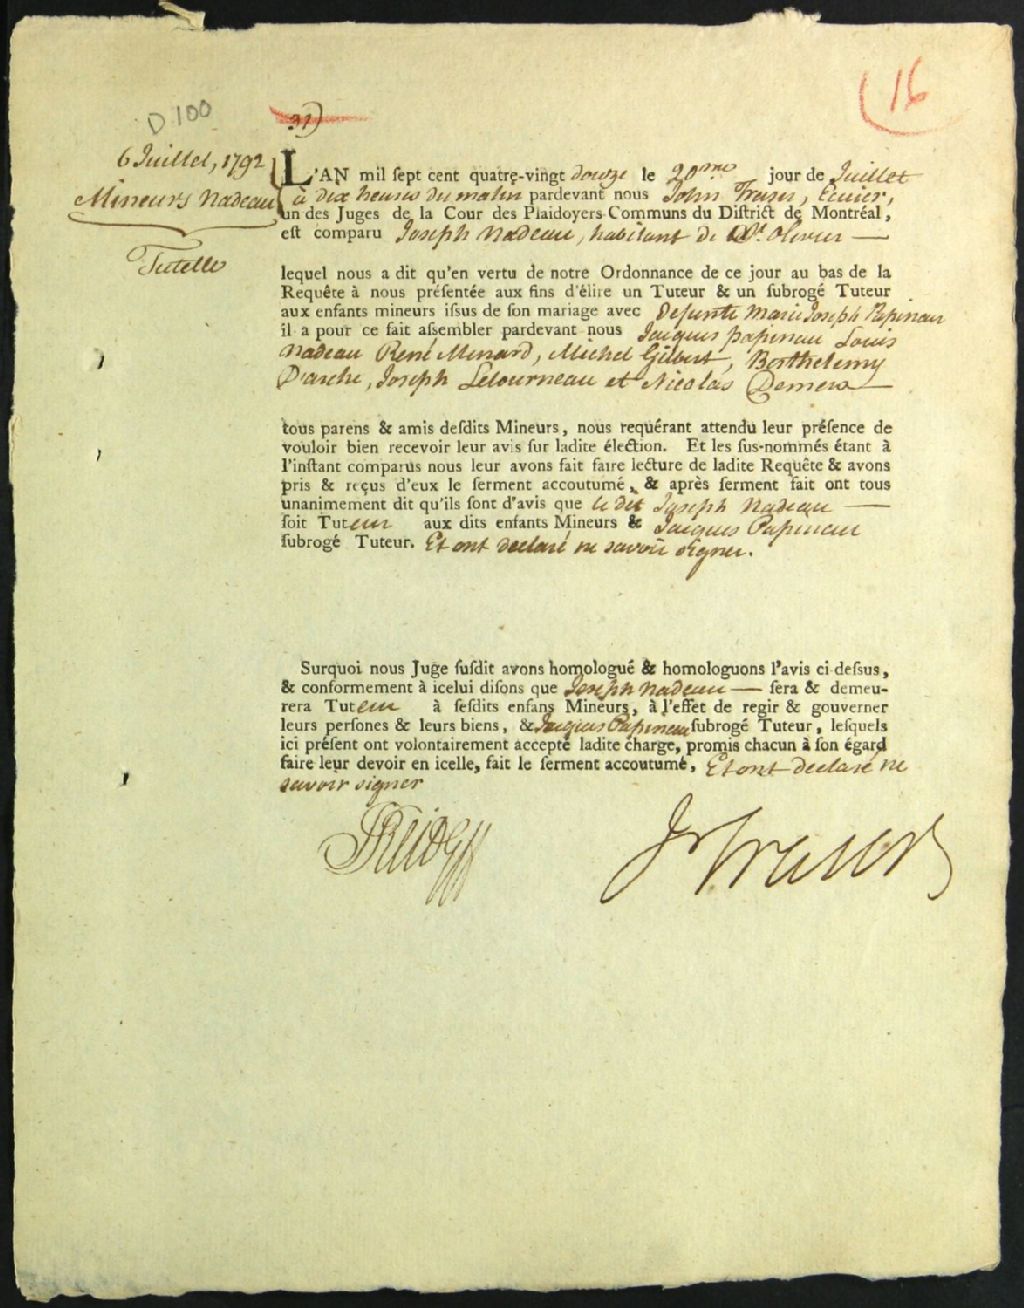 D 100
31)
16
6 Juillet, 1792
Mineurs Nadeau
Tutelle
L'AN mil sept cent quatre-vingt douze le 20me jour de Juillet
à dix heures du matin pardevant nous John Fraser, Ecuier,
un des Juges de la Cour des Plaidoyers Communs du District de Montréal,
est comparu Joseph Nadeau, habitant de St. Olivier —
lequel nous a dit qu'en vertu de notre Ordonnance de ce jour au bas de la
Requête à nous préſentée aux fins d'élire un Tuteur & un ſubrogé Tuteur
aux enfants mineurs iſſus de ſon mariage avec Defunte Marie Joseph Papineau
il a pour ce fait aſſembler pardevant nous Jacques papineau Louis
Nadeau René Menard, Michel Gilbert, Berthelemy
Darche, Joseph Letourneau et Nicolas Demers —
tous parens & amis deſdits Mineurs, nous requérant attendu leur préſence de
vouloir bien recevoir leur avis ſur ladite élection. Et les ſus-nommés étant à
l'inſtant comparus nous leur avons fait faire lecture de ladite Requête & avons
pris & reçus d'eux le ſerment accoutumé, & après ſerment fait ont tous
unanimement dit qu'ils ſont d'avis que le dit Joseph Nadeau —
ſoit Tuteur aux dits enfants Mineurs & Jacques Papineau
ſubrogé Tuteur. Et ont declaré ne savoir signer.
Surquoi nous Juge ſuſdit avons homologué & homologuons l'avis ci-deſſus,
& conformement à icelui diſons que Joseph Nadeau — ſera & demeu-
rera Tuteur à ſeſdits enfans Mineurs, à l'effet de regir & gouverner
leurs perſones & leurs biens, & Jacques Papineau ſubrogé Tuteur, leſquels
ici préſent ont volontairement accepté ladite charge, promis chacun à ſon égard
faire leur devoir en icelle, fait le ſerment accoutumé, Et ont declaré ne
savoir signer
JReid
Jn Fraser